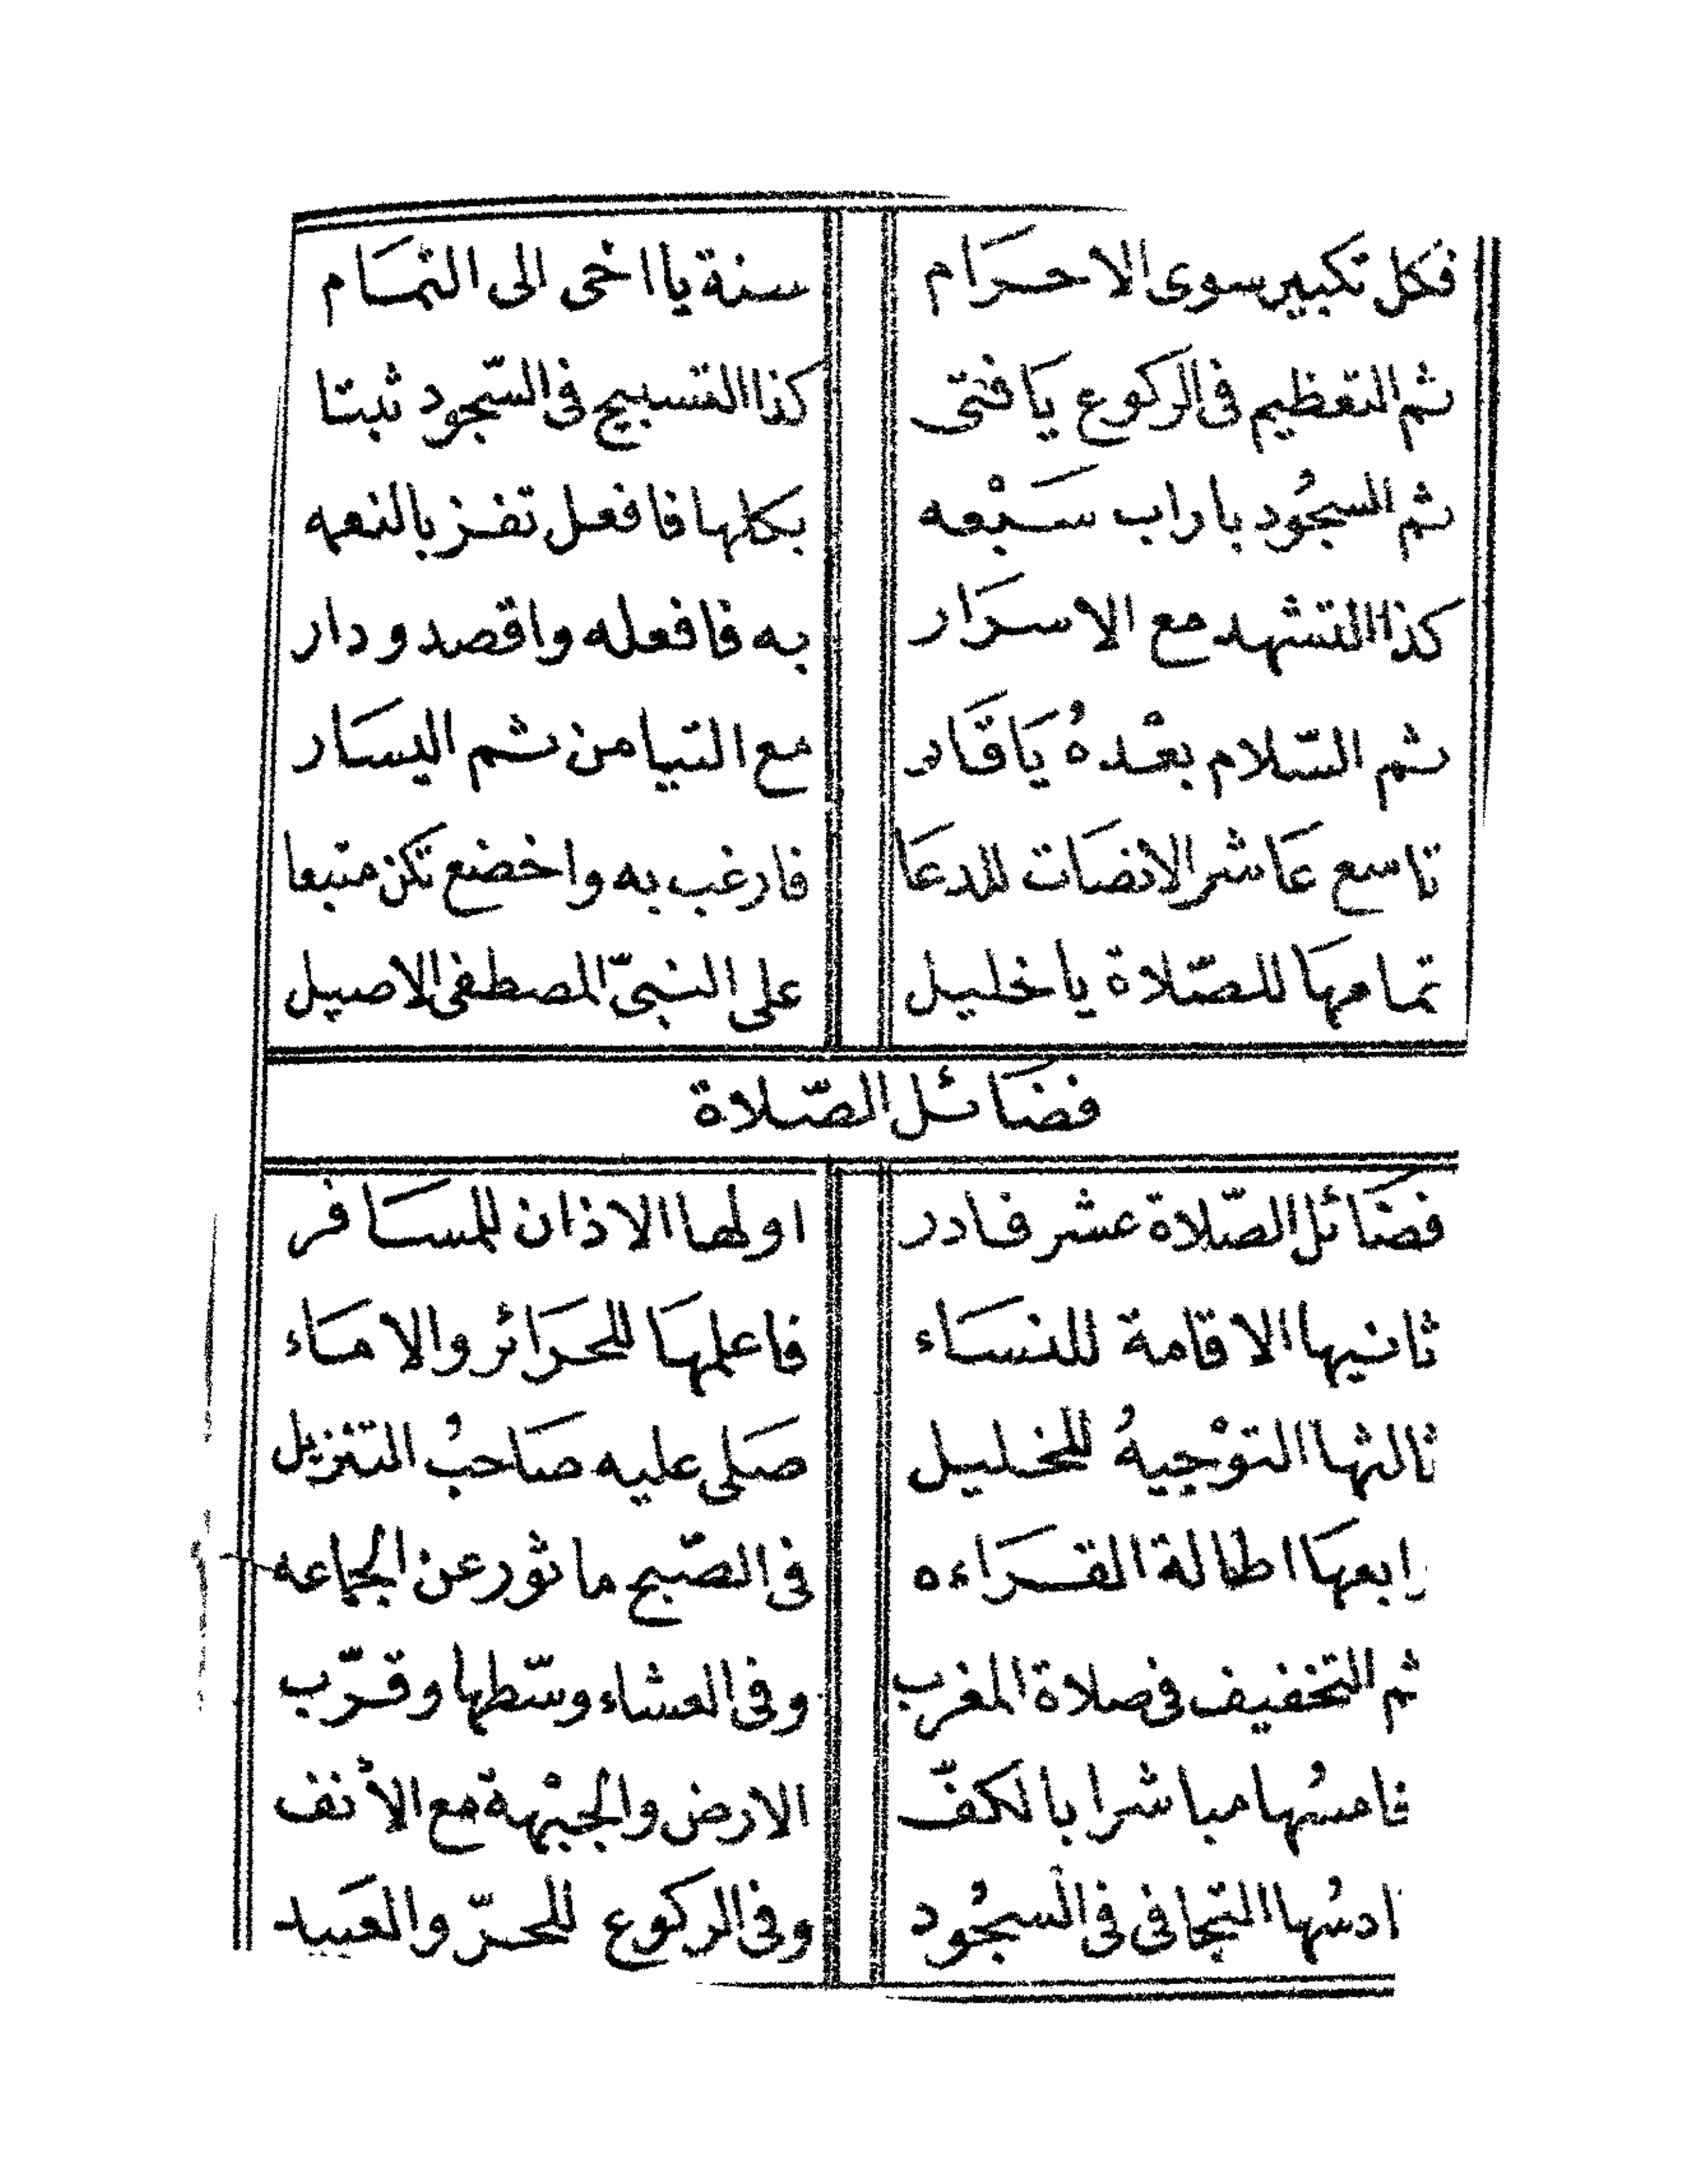 فكل تكبير سوى الاحرام سنة يا اخى الى التمام
ثم التعظيم فى الركوع يا فتى كذا التسبيح فى السّجود ثبتا
ثم السجُود باراب سَبْعه بكلها فافعل تفز بالنعمه
كذا التشهد مع الاسرَار به فافعله واقصد ودار
ثم السّلام بعْدهُ يَا قَار مع التيامن ثم اليسَار
تاسع عَاشر الانصَات للدعَا فارغب به واخضع تكن متبعا
تمامهَا للصّلاة يا خليل على النبىّ المصطفى الاصيل
فضَائل الصّلاة
فضَائل الصّلاة عشر فادر اولها الاذان للمسَافر
ثانيها الاقامة للنسَاء فاعلمهَا للحرَائر والامَاء
ثالثها التوْجيهُ للخليل صَلى عليه صَاحبُ التنزيل
رابعهَا اطالة القرَاءه فى الصّبح ماثور عن الجماعه
ثم التخفيف فى صلاة المغرب وفى العشاء وسّطها وقرّب
خامسُها مباشرا بالكفّ الارض والجبْهة مع الأنف
ادسُها التجافى فى السجُود وفى الركوع للحرّ والعَبيد